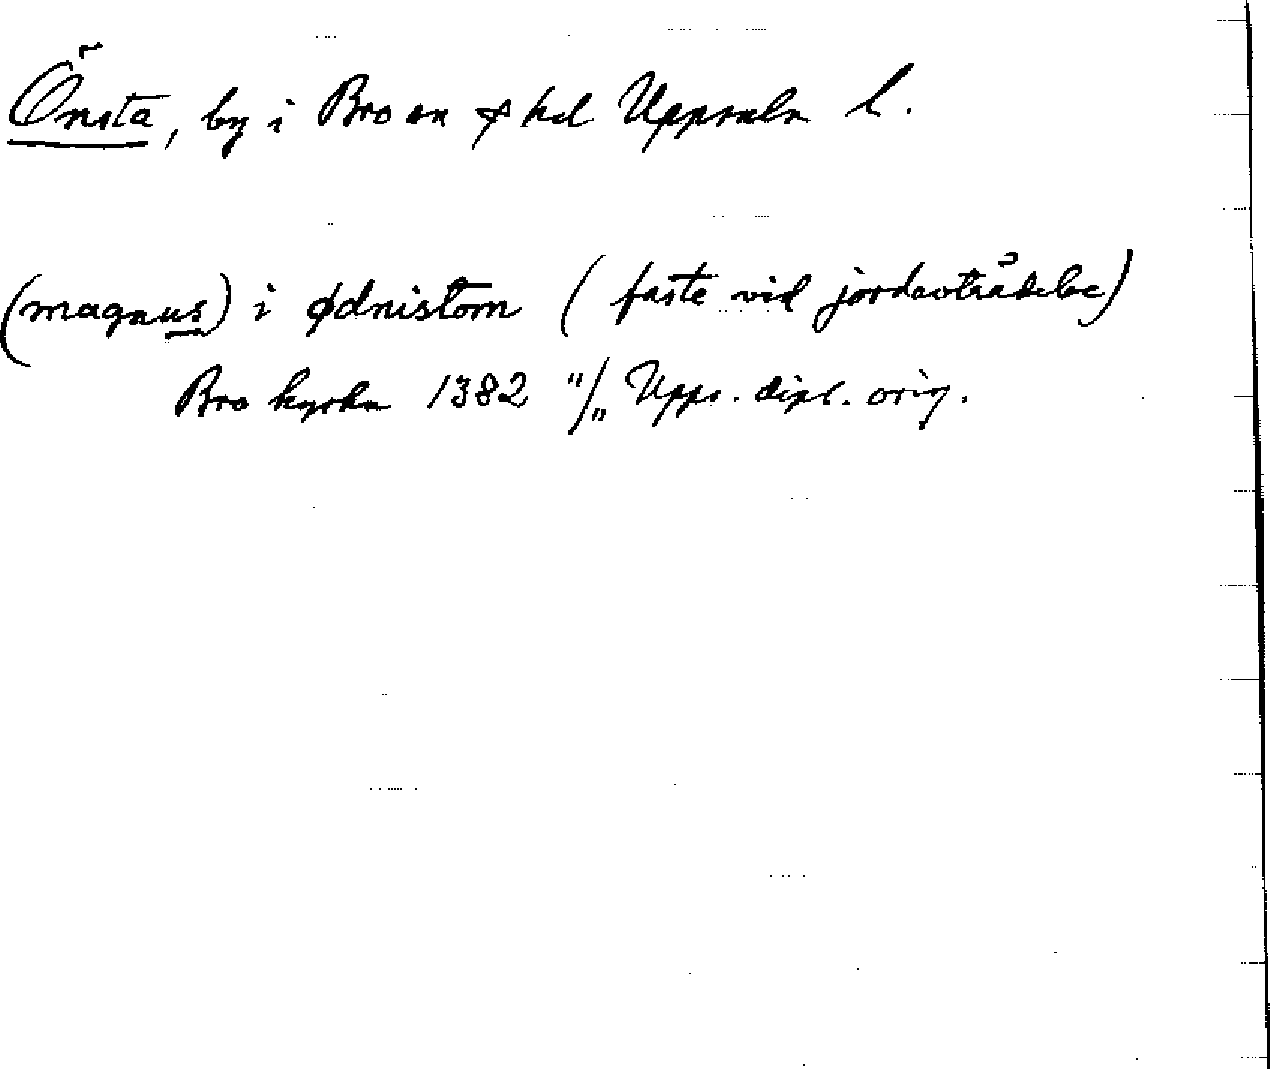 Önsta, by i Bro sn o hd Uppsala l.
(magnus) i ødnistom (faste vid jordavträdelse)
Bro kyrka 1382 "/" Upps. dipl. orig.